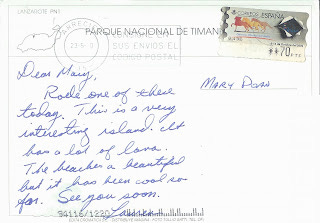 LANZAROTE PN1
PARQUE NACIONAL DE TIMAN
CORREOS ESPAÑA
SUS ENVIOS EL
CODIGO POSTAL
Dear Mary,
Rode one of these
today. This is a very
interesting island. It
has a lot of lava.
The beaches a beautiful
but it has been cool so
far. See you soon.
Mary Doan